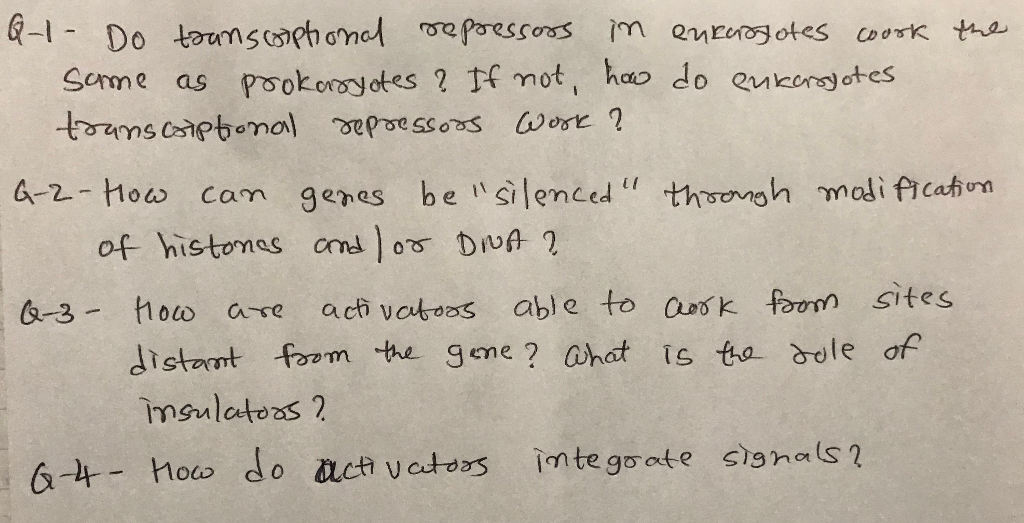 Q-1- Do transcriptional repressors in eukaryotes work the
same as prokaryotes? If not, how do eukaryotes
transcriptional repressors work?
Q-2- How can genes be "silenced" through modification
of histones and/or DNA?
Q-3- How are activators able to work from sites
distant from the gene? What is the role of
insulators?
Q-4- How do activators integrate signals?